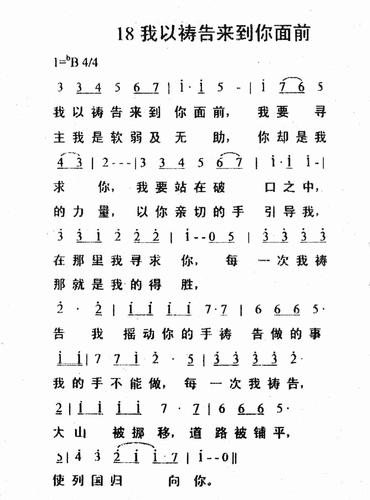 18 我以祷告来到你面前
1=ᵇB 4/4
3 3 4 5 6 7 | i · i 5 - | i 7 6 5
我以祷告来到 你面前, 我要 寻
主我是软弱及无 助, 你却是我
4 3 | 2 - - - | 3 3 4 5 6 7 | i · i i - |
求 你, 我要站在破 口之中,
的力量, 以你亲切的手 引导我,
3 3 i 2 2 2 | i - - 0 5 | 3 3 3 3
在那里我寻求 你, 每 一次我祷
那就是我的得 胜,
2 · 2 | i i i i 7 · 7 | 6 6 6 5 ·
告 我 摇动你的手祷 告做的事
i i | 7 7 i 2 · 5 | 3 3 3 3
我的手不能做, 每一次我祷告,
2 | i i i i 7 · 7 | 6 6 6 5 ·
大山 被挪移, 道路被铺平,
5 | 4 3 2 i i · 7 | i - - 0 ‖
使列国归 向你。